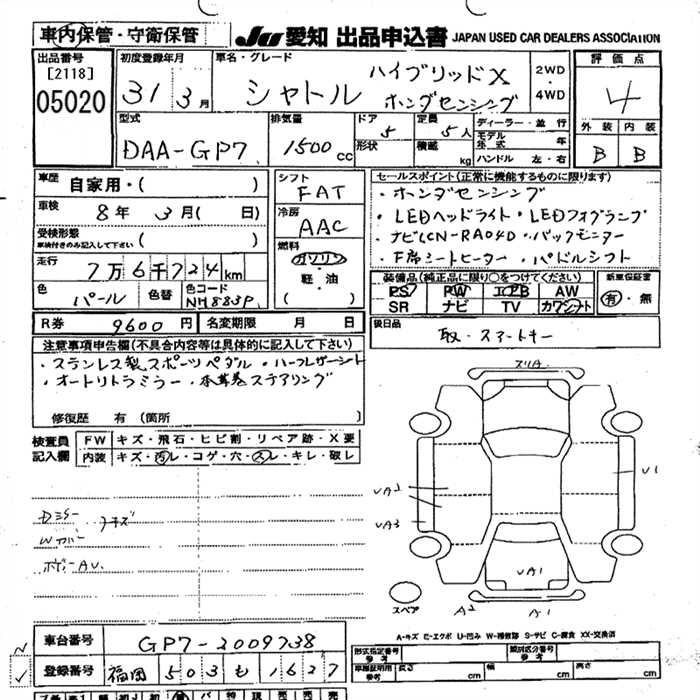 車内保管・守衛保管
JU 愛知 出品申込書 JAPAN USED CAR DEALERS ASSOCIATION
出品番号
[2118]
05020
初度登録年月
31年3月
車名・グレード
シャトル ハイブリッドX
ホンダセンシング
2WD
・
4WD
評価点
4
外装 内装
B B
型式
DAA-GP7
排気量
1500cc
ドア
5
形状
定員
5人
積載 kg
ディーラー・並行
モデル年式 年
ハンドル 左・右
車歴 自家用・( )
車検 8年 3月( 日)
受検形態
車検付きのみ記入して下さい ( )
走行 7万6千724km
色 パール 色替 色コード NH883P
シフト
FAT
冷房
AAC
燃料
ガソリン
軽・油
セールスポイント(正常に機能するものに限ります)
・ホンダセンシング
・LEDヘッドライト・LEDフォグランプ
・ナビLCN-RA04D・バックモニター
・F席シートヒーター・パドルシフト
装備品(純正品に限り○をつけてください)
PS PW エアB AW
SR ナビ TV カワシート
新車保証書
有・無
R券 9600円 名変期限 月 日
後日品
取・スマートキー
注意事項申告欄(不具合内容等は具体的に記入して下さい)
・ステンレス製スポーツペダル・ハーフレザーシート
・オートリトラミラー・本革巻ステアリング
修復歴 有(箇所 )
検査員
記入欄
FW キズ・飛石・ヒビ割・リペア跡・X要
内装 キズ・汚レ・コゲ・穴・スレ・キレ・破レ
Dミラー
キズ
ボディーAU.
スリA
U1
UA2
UA3
UA1
A2
A1
スペア
A-キズ E-エクボ U-凹み W-補修跡 S-サビ C-腐食 XX-交換済
車台番号 GP7-2009738
登録番号 福岡 503 も 1627
型式指定番号
参考
類別区分番号
参考
車庫証明用
参考
長さ cm
幅 cm
高さ cm